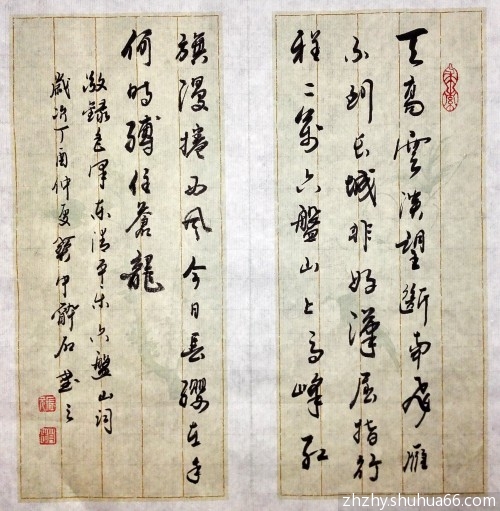 天高雲淡望斷南飛雁
不到長城非好漢屈指行
程二萬六盤山上高峰紅
旗漫捲西風今日長纓在手
何時縛住蒼龍
敬錄毛澤東清平樂六盤山詞
歲次丁酉仲夏
zhzhy.shuhua66.com